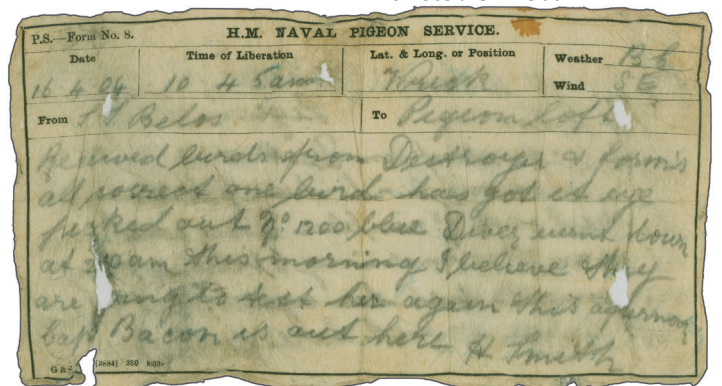 P.S.—Form No. 8. H.M. NAVAL PIGEON SERVICE.
Date Time of Liberation Lat. & Long. or Position Weather Bb
Wind SE
16 4 04 10 45am Wreck
From SS Belos To Pigeon Loft
Recived burds from Destroyer & form's
all correct one burd has got it eye
pecked out No 1200 blue Diver wunt down
at am this morning I believe they
are going to test her again this afternoon
Bacon is out here H Smith
G & S (3884) 350